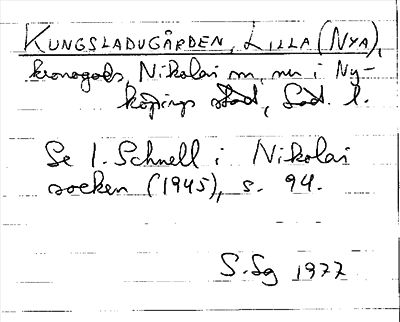 KUNGSLADUGÅRDEN, LILLA (NYA),
kronogods, Nikolai sn, nu i Ny-
köpings stad, Söd. l.
Se I. Schnell i Nikolai
socken (1945), s. 94.
S.Sg 1977